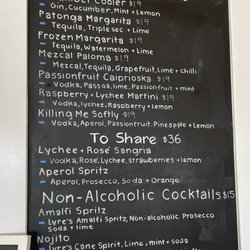 Cooler $19
Gin, Cucumber, Mint + Lemon
Patonga Margarita $19
Tequila, Triple sec + Lime
Frozen Margarita $19
Tequila, Watermelon + Lime
Mezcal Paloma $19
Mezcal, Tequila, Grapefruit, Lime + Chilli
Passionfruit Caiprioska $19
Vodka, Passoa, lime, Passionfruit + mint
Raspberry + Lychee Martini $19
Vodka, lychee, Raspberry + lemon
Killing Me Softly $19
Vodka, Aperol, Passionfruit, Pineapple + Lemon
To Share $36
Lychee + Rosé Sangria
Vodka, Rosé, Lychee, strawberries + lemon
Aperol Spritz
Aperol, Prosecco, Soda + Orange
Non-Alcoholic Cocktails $15
Amalfi Spritz
Lyre's Amalfi Spritz, Non-alcoholic Prosecco
Soda + lime
Nojito
Lyre's Cane Spirit, Lime, mint + soda